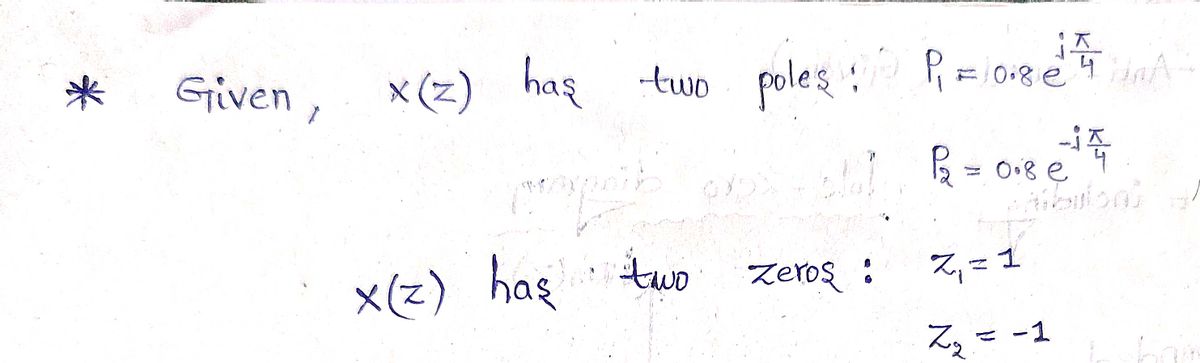 * Given, X(z) has two poles: P₁ = 0.8 e^{jπ/4}
P₂ = 0.8 e^{-jπ/4}
X(z) has two zeros: Z₁ = 1
Z₂ = -1